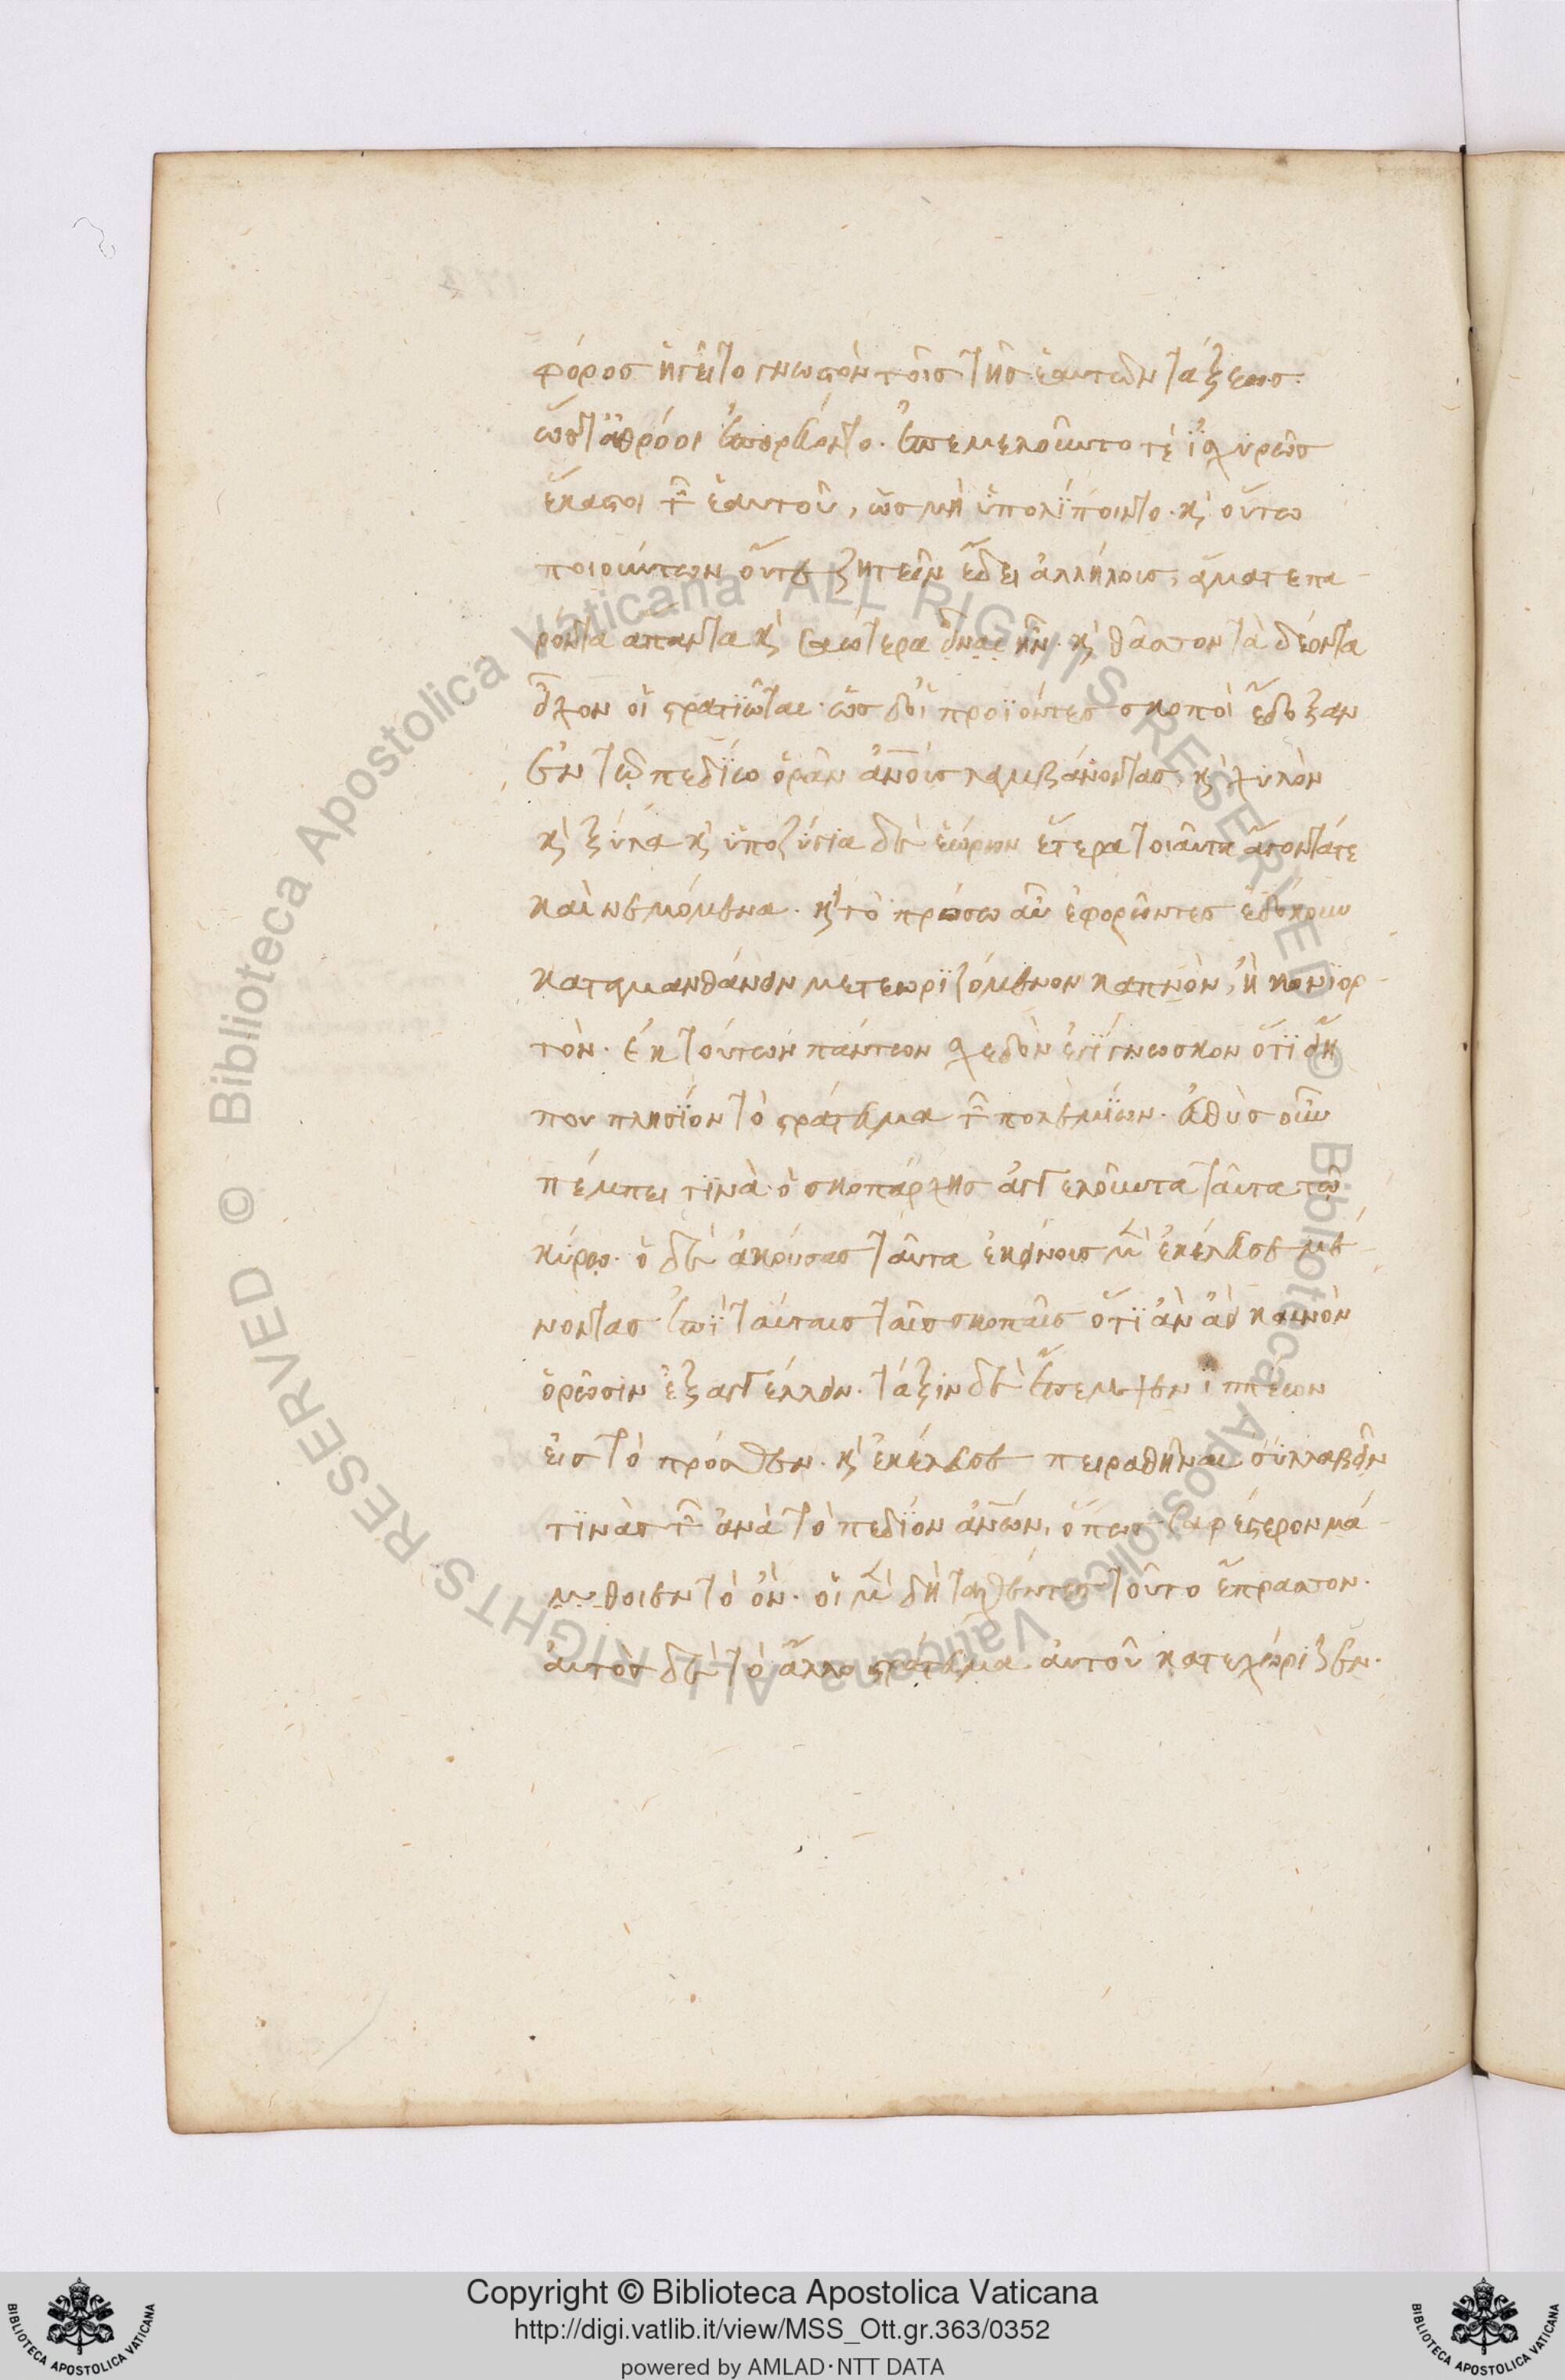 φόρος ἡγεῖτο γνωστὸν τοῖς τῆς ἑαυτῶν τάξεως.
ὥστ' ἀθρόοι ἐπορεύοντο. ἐπεμελοῦντο τὲ ἰσχυρῶς
ἕκαστοι τῶν ἑαυτοῦ, ὡς μὴ ὑπολίποιντο. καὶ οὕτω
ποιούντων οὔτε ζητεῖν ἔδει ἀλλήλοις, ἅμα τε πα-
ρόντα ἅπαντα καὶ σαώτερα ἦν. καὶ θᾶττον τὰ δέοντα
εἶχον οἱ στρατιῶται. ὡς δ' οἱ προϊόντες σκοποὶ ἔδοξαν
ἐν τῷ πεδίῳ ὁρᾶν ἀνους λαμβάνοντας καὶ χιλὸν
καὶ ξύλα καὶ ὑποζύγια δὲ ἑώρων ἕτερα τοιαῦτα ἄγοντά τε
καὶ νεμόμενα. καὶ τὸ πρόσω αὖ ἐφορῶντες ἐδόκουν
καταμανθάνειν μετεωριζόμενον καπνὸν, ἢ κονιορ-
τὸν. ἐκ τούτων πάντων σχεδὸν ἐγίγνωσκον ὅτι εἴη
που πλησίον τὸ στράτευμα τῶν πολεμίων. εὐθὺς οὖν
πέμπει τινὰ ὁ σκοπάρχης ἀγγελοῦντα ταῦτα τῷ
κύρῳ. ὁ δὲ ἀκούσας ταῦτα ἐκείνοις μὲν ἐκέλευσε μέ-
νοντας ἐπὶ ταύταις ταῖς σκοπαῖς ὅτι ἂν ἀεὶ καινὸν
ὁρῶσιν ἐξαγγέλλειν. τάξιν δὲ ἔπεμψεν ἱππέων
εἰς τὸ πρόσθεν. καὶ ἐκέλευσε πειραθῆναι συλλαβεῖν
τινὰς τῶν ἀνὰ τὸ πεδίον ἀνων, ὅπως σαφέστερον μά-
θοιεν τὸ ὄν. οἱ μὲν δὴ ταχθέντες τοῦτο ἔπραττον.
αὐτὸς δὲ τὸ ἄλλο στράτευμα αὐτοῦ κατεχώριζεν.
© Biblioteca Apostolica Vaticana ALL RIGHTS RESERVED
© Biblioteca Apostolica Vaticana ALL RIGHTS RESERVED
Copyright © Biblioteca Apostolica Vaticana
http://digi.vatlib.it/view/MSS_Ott.gr.363/0352
powered by AMLAD·NTT DATA
BIBLIOTECA APOSTOLICA VATICANA
BIBLIOTECA APOSTOLICA VATICANA